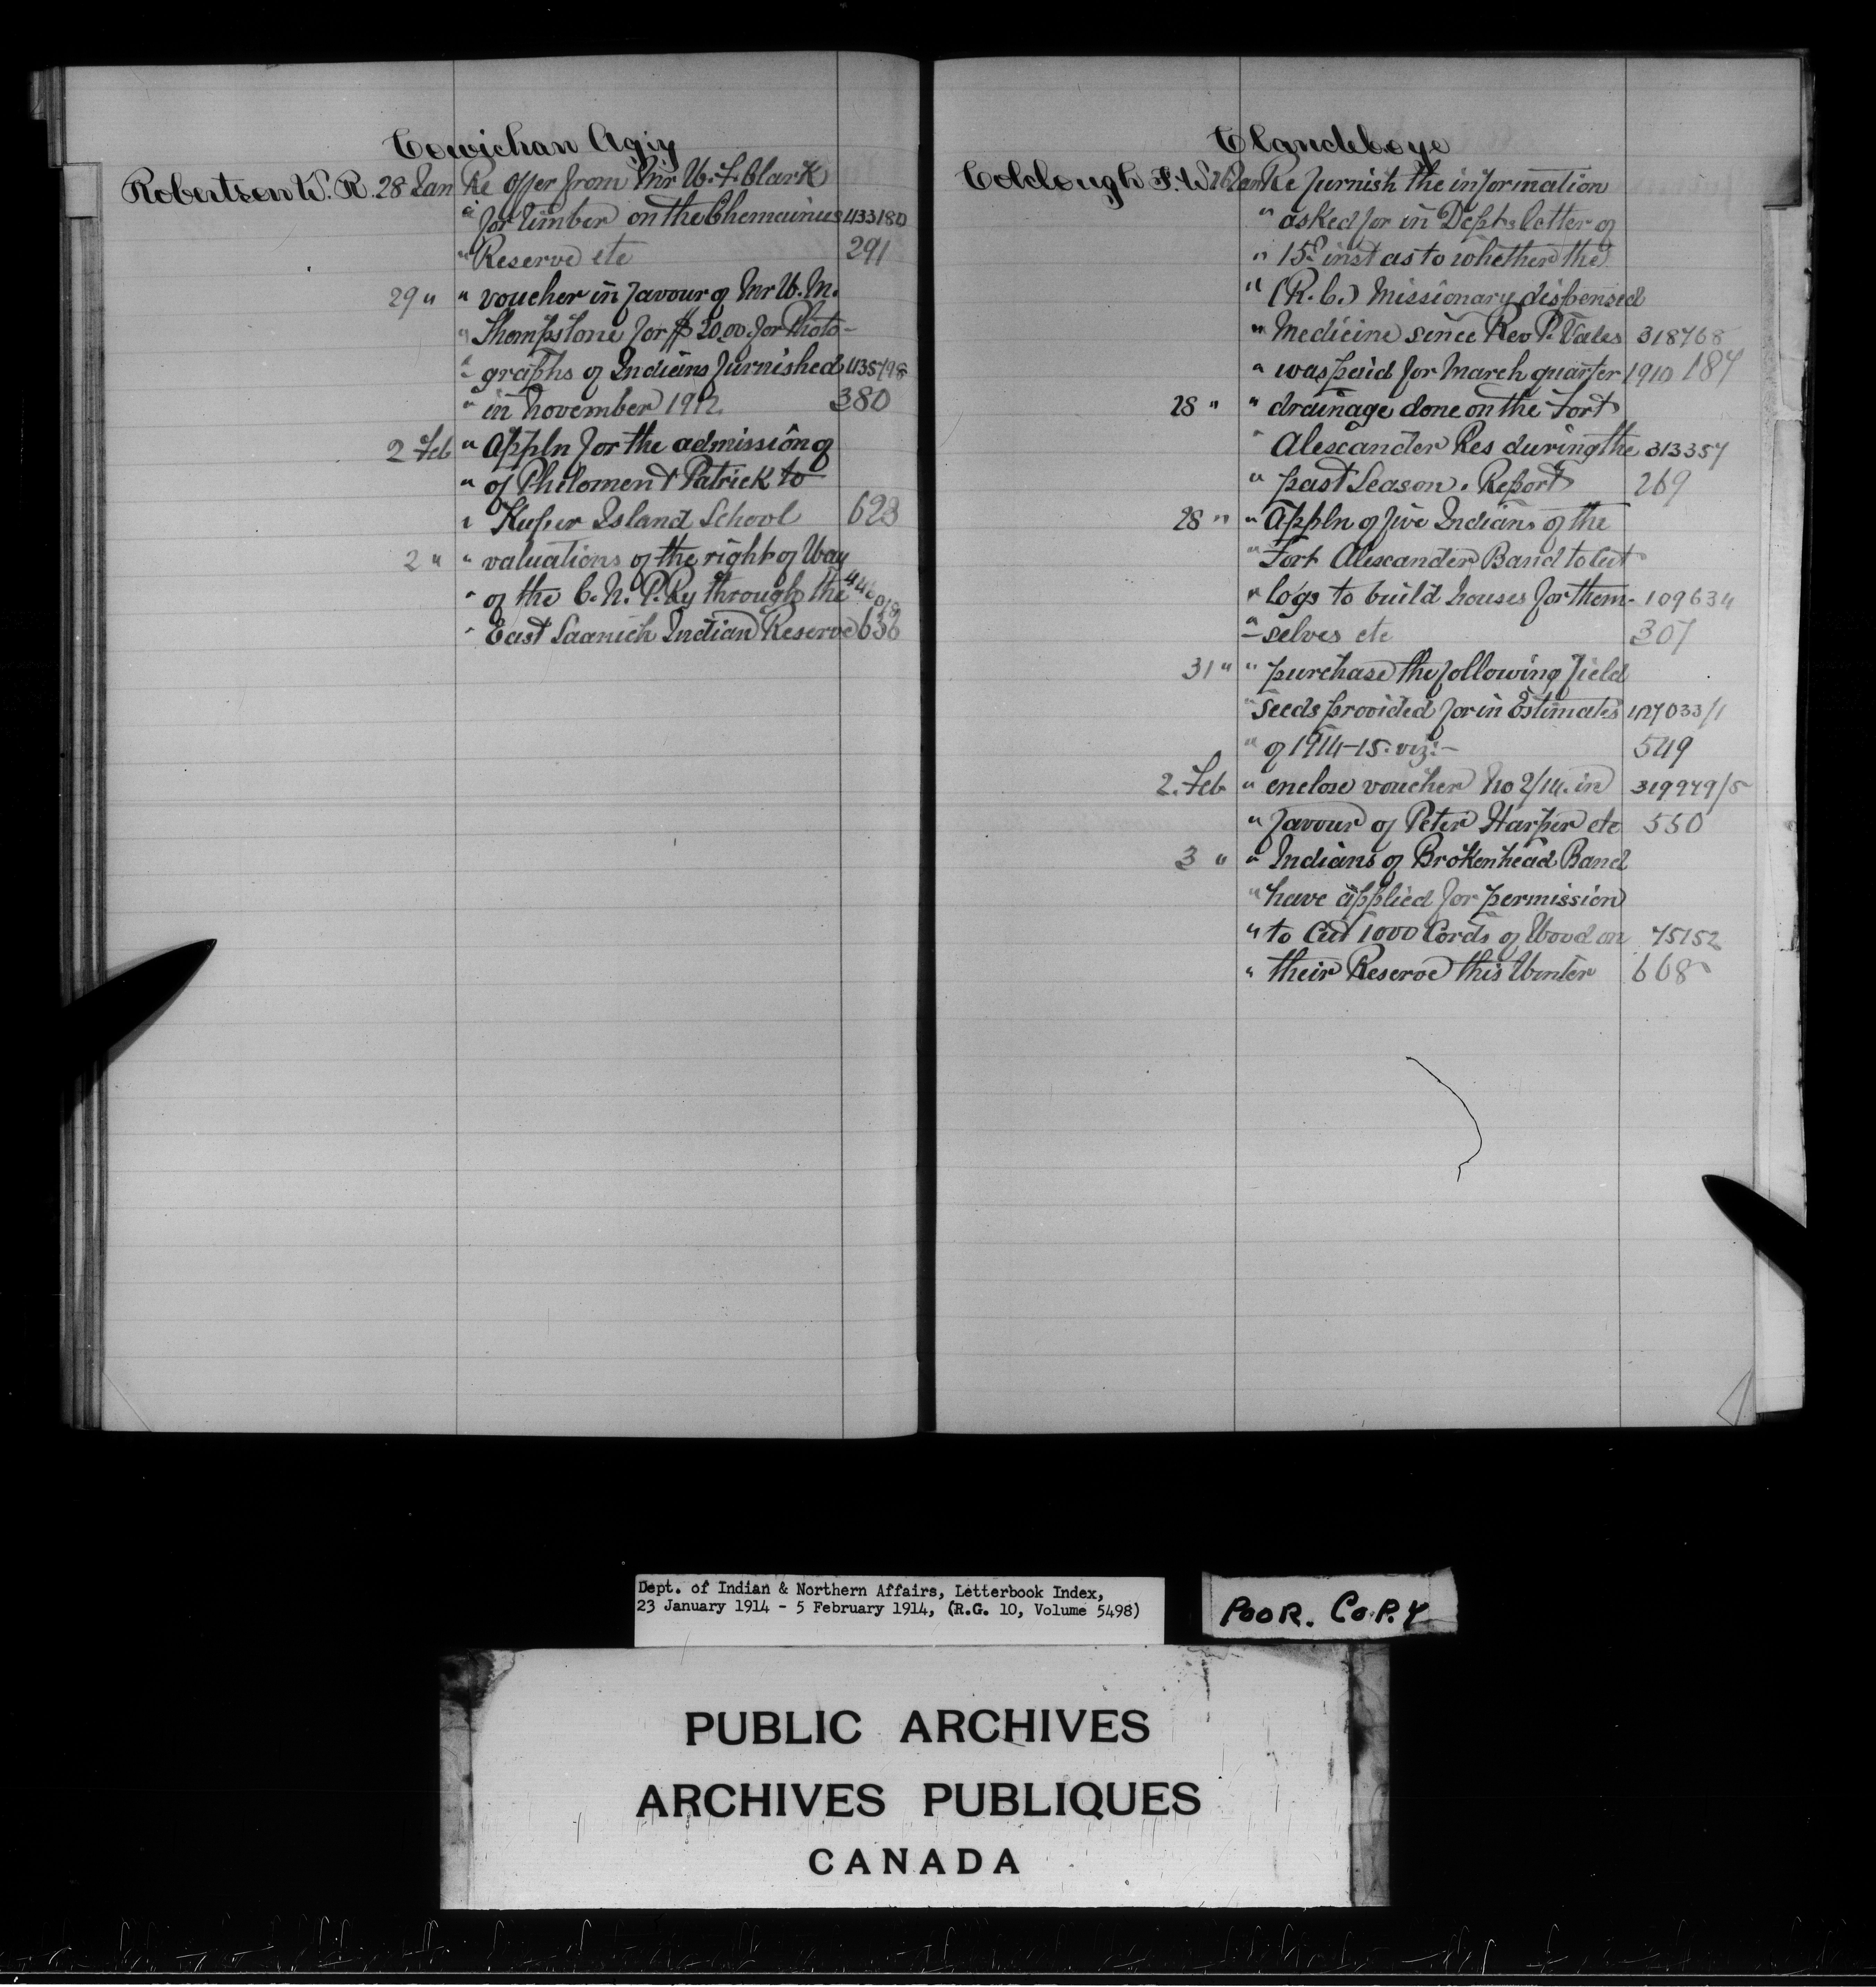 Cowichan Agcy
Robertson W. R. 28 Jan Re offer from Mr W. F. Clark
" for timber on the Chemainus 433180
" Reserve etc 291
29 " " voucher in favour of Mr W. M.
" Thompstone for $20.00 for Photo-
" graphs of Indians furnished 435798
" in November 1912. 380
2 Feb " Appln for the admission of
" of Philomen & Patrick to
" Kuper Island School 623
2 " " valuations of the right of Way
" of the C. N. P. Ry through the
" East Saanich Indian Reserve 636
Clandeboye
Colclough F. W. 26 Jan Re furnish the information
" asked for in Dept's letter of
" 15th inst as to whether the
" (R. C.) Missionary dispensed
" Medicine since Rev P. Vales 318768
" was paid for March quarter 1910 187
28 " " drainage done on the Fort
" Alexander Res during the 313357
" past Season. Report 269
28 " " Appln of five Indians of the
" Fort Alexander Band to cut
" logs to build houses for them- 109634
" -selves etc 307
31 " " purchase the following field
" Seeds provided for in Estimates 427033/1
" of 1914-15. viz:- 549
2. Feb " enclose voucher No 2/14. in 319979/5
" favour of Peter Harper etc 550
3 " " Indians of Brokenhead Band
" have applied for permission
" to Cut 1000 Cords of Wood on 75152
" their Reserve this Winter 668
Dept. of Indian & Northern Affairs, Letterbook Index,
23 January 1914 - 5 February 1914, (R.G. 10, Volume 5498)
POOR. COPY
PUBLIC ARCHIVES
ARCHIVES PUBLIQUES
CANADA